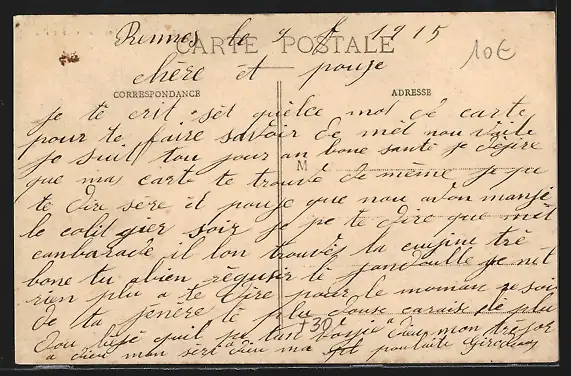 Rennes le 9 8 1915
CARTE POSTALE
10€
chère et pouse
CORRESPONDANCE
ADRESSE
je te crit sèt quelce mot de carte
pour te faire savoir de mèt nou vèlle
je suit tou jour an bone santé je désire
M
que ma carte te trouve de même je pe
te dire sère et pouse que nou avon mangé
le colit gier soir je pe te dire que mèt
canbarade il lon trouvér ta cuisine trè
bone tu a bien régusir lè jandoulle je nèt
rien plu a te dire pour le moman je soi
de ta jenère lè plu douse caraise lè plu
dou bèsé quil
+30
a dieu mon trésor
a dieu mon sèri dieu ma